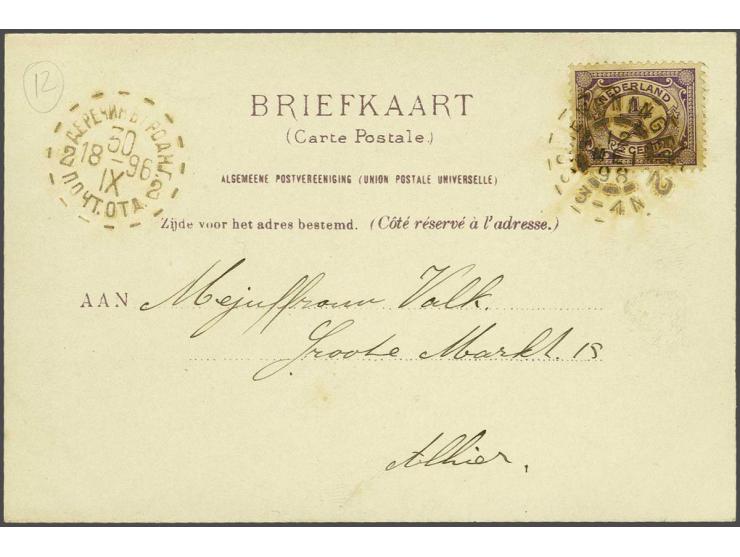 12
BRIEFKAART
(Carte Postale.)
ALGEMEENE POSTVEREENIGING (UNION POSTALE UNIVERSELLE)
Zijde voor het adres bestemd. (Côté réservé à l'adresse.)
30
18-96
IX
ПОЧТ.ОТД.
2 2
NEDERLAND
98
AAN Mejuffrouw Valk.
Groote Markt. 18
Alhier.